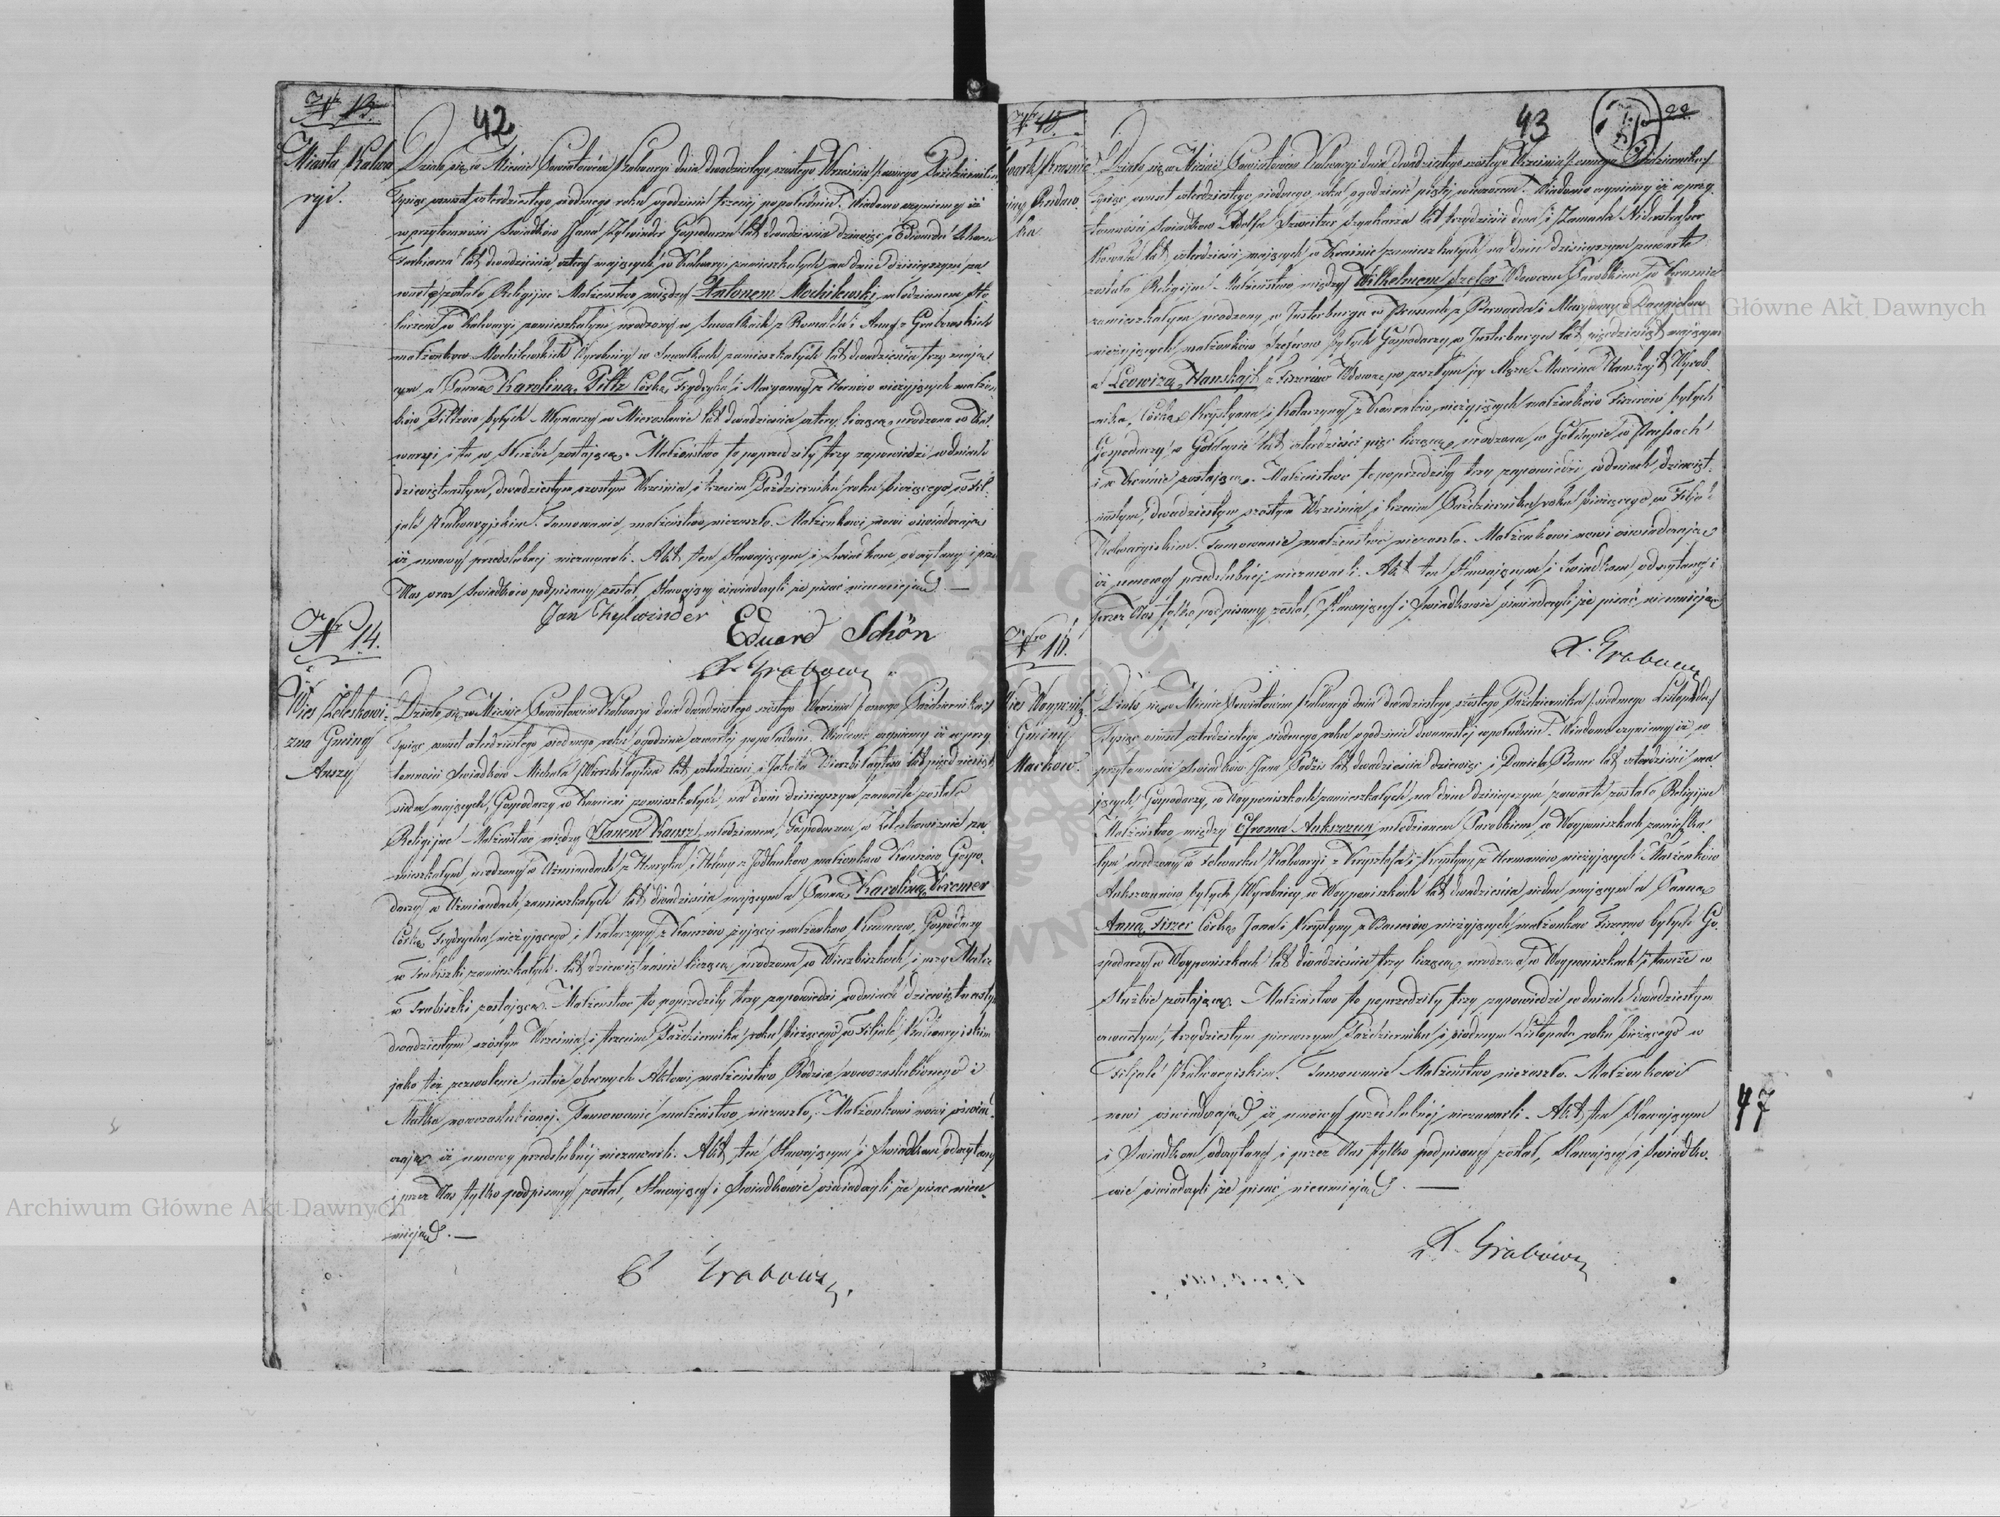 N 13.
42
Miasto Kalwa
ryi.
Działo się w Mieście Powiatowém Kalwaryi dnia dwudziestego szóstego Września /:ósmego Października:/
Tysiąc ośmset czterdziestego siódmego roku o godzinie trzeciej po południu. Wiadomo czyniemy iż
w przytomności Świadków Jana Zylwinder Gospodarza lat dwadzieścia dziewięć i Edwarda Schoen
Farbiarza lat dwadzieścia cztery mających, w Kalwaryi zamieszkałych na dniu dzisiejszym za
warte zostało Religijne Małżeństwo między Antonem Mochilewski młodzianem
w Kalwaryi zamieszkałym urodzony w Suwałkach z Romualda i Anny z Grabowskich
małżonków Mochilewskich Wyrobnicy w Suwałkach zamieszkałych lat dwadzieścia trzy mają
cym, a Panną Karoliną Piltz Córką Frydryka i Maryanny z nieżyjących małżon
ków Piltzów byłych Młynarzy w Mirosławie lat dwadzieścia cztery liczącą urodzona w Kal
waryi i tu w Służbie zostającą. Małżeństwo to poprzedziły trzy zapowiedzi w dniach
dziewiętnastym, dwudziestym szóstym Września i trzecim Października roku bieżącego w Fil-
jale Kalwaryjskim. Tamowanie małżeństwa nie zaszło. Małżonkowie nowi oświadczają
iż umowy przedślubnej niezawarli. Akt ten Stawającym i Świadkom odczytany i przez
Nas oraz Świadków podpisany został, Stawający oświadczyli że pisać nieumieją.
Jan Zylwinder
Eduard Schön
X. Grabows
N 14.
Wieś Zeleskowi-
zna Gminy
Auszy
Działo się w Mieście Powiatowém Kalwaryi dnia dwudziestego szóstego Września /:ósmego Października:/
Tysiąc ośmset czterdziestego siódmego roku o godzinie czwartej po południu. Wiadomo czyniemy iż w przy
tomności Świadków Michała Wierzbitaytisa lat czterdzieści i Jakóba Wierzbitaytisa lat pięćdziesiąt
siedm mających, Gospodarzy w zamieszkałych, na dniu dzisiejszym zawarte zostało
Religijne Małżeństwo między Janem Kausz, młodzianem, Gospodarzem, w za
mieszkałym, urodzony w Uzmiandach z Henryka i Heleny z małżonków Kauszów Gospo
darzy w Uzmiandach zamieszkałych lat dwadzieścia mającym a Panną, Karoliną Kremer
Córką Frydrycha nieżyjącego i Katarzyny z Kauszów żyjącej małżonków Kremerów, Gospodarzy
w Trabiszki zamieszkałych lat dziewiętnaście liczącą urodzona w Wierzbiszkach, i przy Matce
w Trabiszki zostającą. Małżeństwo to poprzedziły trzy zapowiedzi w dniach dziewiętnastym
dwudziestym szóstym Września, i trzecim Października roku bieżącego w Filjale Kalwaryjskim
jako też pozwolenie ustne obecnych Aktowi małżeństwa Rodzica nowozaślubionego i
Matka nowozaślubionej. Tamowanie małżeństwa nie zaszło, Małżonkowie nowi oświad-
czają iż umowy przedślubnej niezawarli. Akt ten Stawającym i Świadkom odczytany
i przez Nas tylko podpisany został, Stawający i Świadkowie oświadczyli że pisać nieu-
mieją.
X Grabows
43
22
wark Krasnie
Gminy Rudaw-
ka
Działo się w Mieście Powiatowém Kalwaryi dnia dwudziestego szóstego Września /:ósmego Października:/
Tysiąc ośmset czterdziestego siódmego roku o godzinie piątej wieczorem. Wiadomo czyniemy iż w przy-
tomności Świadków Adolfa Szweitzer Szynkarza lat trzydzieści dwa i Samuela
Kowala lat czterdzieści mających w Krasnie zamieszkałych na dniu dzisiejszym zawarte
zostało Religijne Małżeństwo między Wilhelmem Szefer Wdowcem Parobkiem w Krasnie
zamieszkałym urodzony w Insterburgu w Prusach z Bernarda i Maryanny z
nieżyjących małżonków Szeferów byłych Gospodarzy w Insterburgu lat mającym
a Lowizą Hanskajt z Fiszerów Wdową po zeszłym jej Mężu Marcinie Hanskajt Wyrob-
niku, Córką Krystyana i Katarzyny z nieżyjących małżonków Fiszerów byłych
Gospodarzy w Gołdapie lat czterdzieści pięć liczącą, urodzona w Gołdapie w Prusach
i w Krasnie zostającą. Małżeństwo to poprzedziły trzy zapowiedzi w dniach dziewięt-
nastym, dwudziestym szóstym Września i trzecim Października roku bieżącego w Filjale
Kalwaryjskim. Tamowanie małżeństwa nie zaszło. Małżonkowie nowi oświadczają
iż umowy przedślubnej niezawarli. Akt ten Stawającym i Świadkom odczytany i
przez Nas tylko podpisany został, Stawający i Świadkowie oświadczyli że pisać nieumieją
X. Grabows
Nro 16.
Gminy
Maćkow.
Działo się w Mieście Powiatowém Kalwaryi dnia dwudziestego szóstego Października /:siódmego Listopada:/
Tysiąc ośmset czterdziestego siódmego roku o godzinie dwunastej w południe. Wiadomo czyniemy iż w
przytomności Świadków Jana lat dwadzieścia dziewięć i Daniela Bauer lat czterdzieści ma-
jących, Gospodarzy, w Woyponiszkach zamieszkałych, na dniu dzisiejszym, zawarte zostało Religijne
Małżeństwo między Ankszun, młodzianem Parobkiem w Woyponiszkach zamieszka-
łym, urodzony w folwarku Kalwaryi z Krysztofa i Krystyny z Hermanów nieżyjących Małżonków
byłych Wyrobnicy w Woyponiszkach lat dwadzieścia siedm mającym a Panną
Anną Fiszer Córką Jana i Krystyny z Bauerów nieżyjących małżonków Fiszerów byłych Go-
spodarzy w Woyponiszkach lat dwadzieścia trzy liczącą urodzona w Woyponiszkach i tamże w
Służbie zostającą. Małżeństwo to poprzedziły trzy zapowiedzi w dniach dwudziestym
czwartym, trzydziestym pierwszym Października i siódmym Listopada roku bieżącego w
Filjale Kalwaryjskim. Tamowanie Małżeństwa nie zaszło. Małżonkowie
nowi oświadczają iż umowy przedślubnej niezawarli. Akt ten Stawającym
i Świadkom odczytany i przez Nas tylko podpisany został, Stawający i Świadko-
wie oświadczyli że pisać nieumieją.
X. Grabows
47
Archiwum Główne Akt Dawnych
Archiwum Główne Akt Dawnych